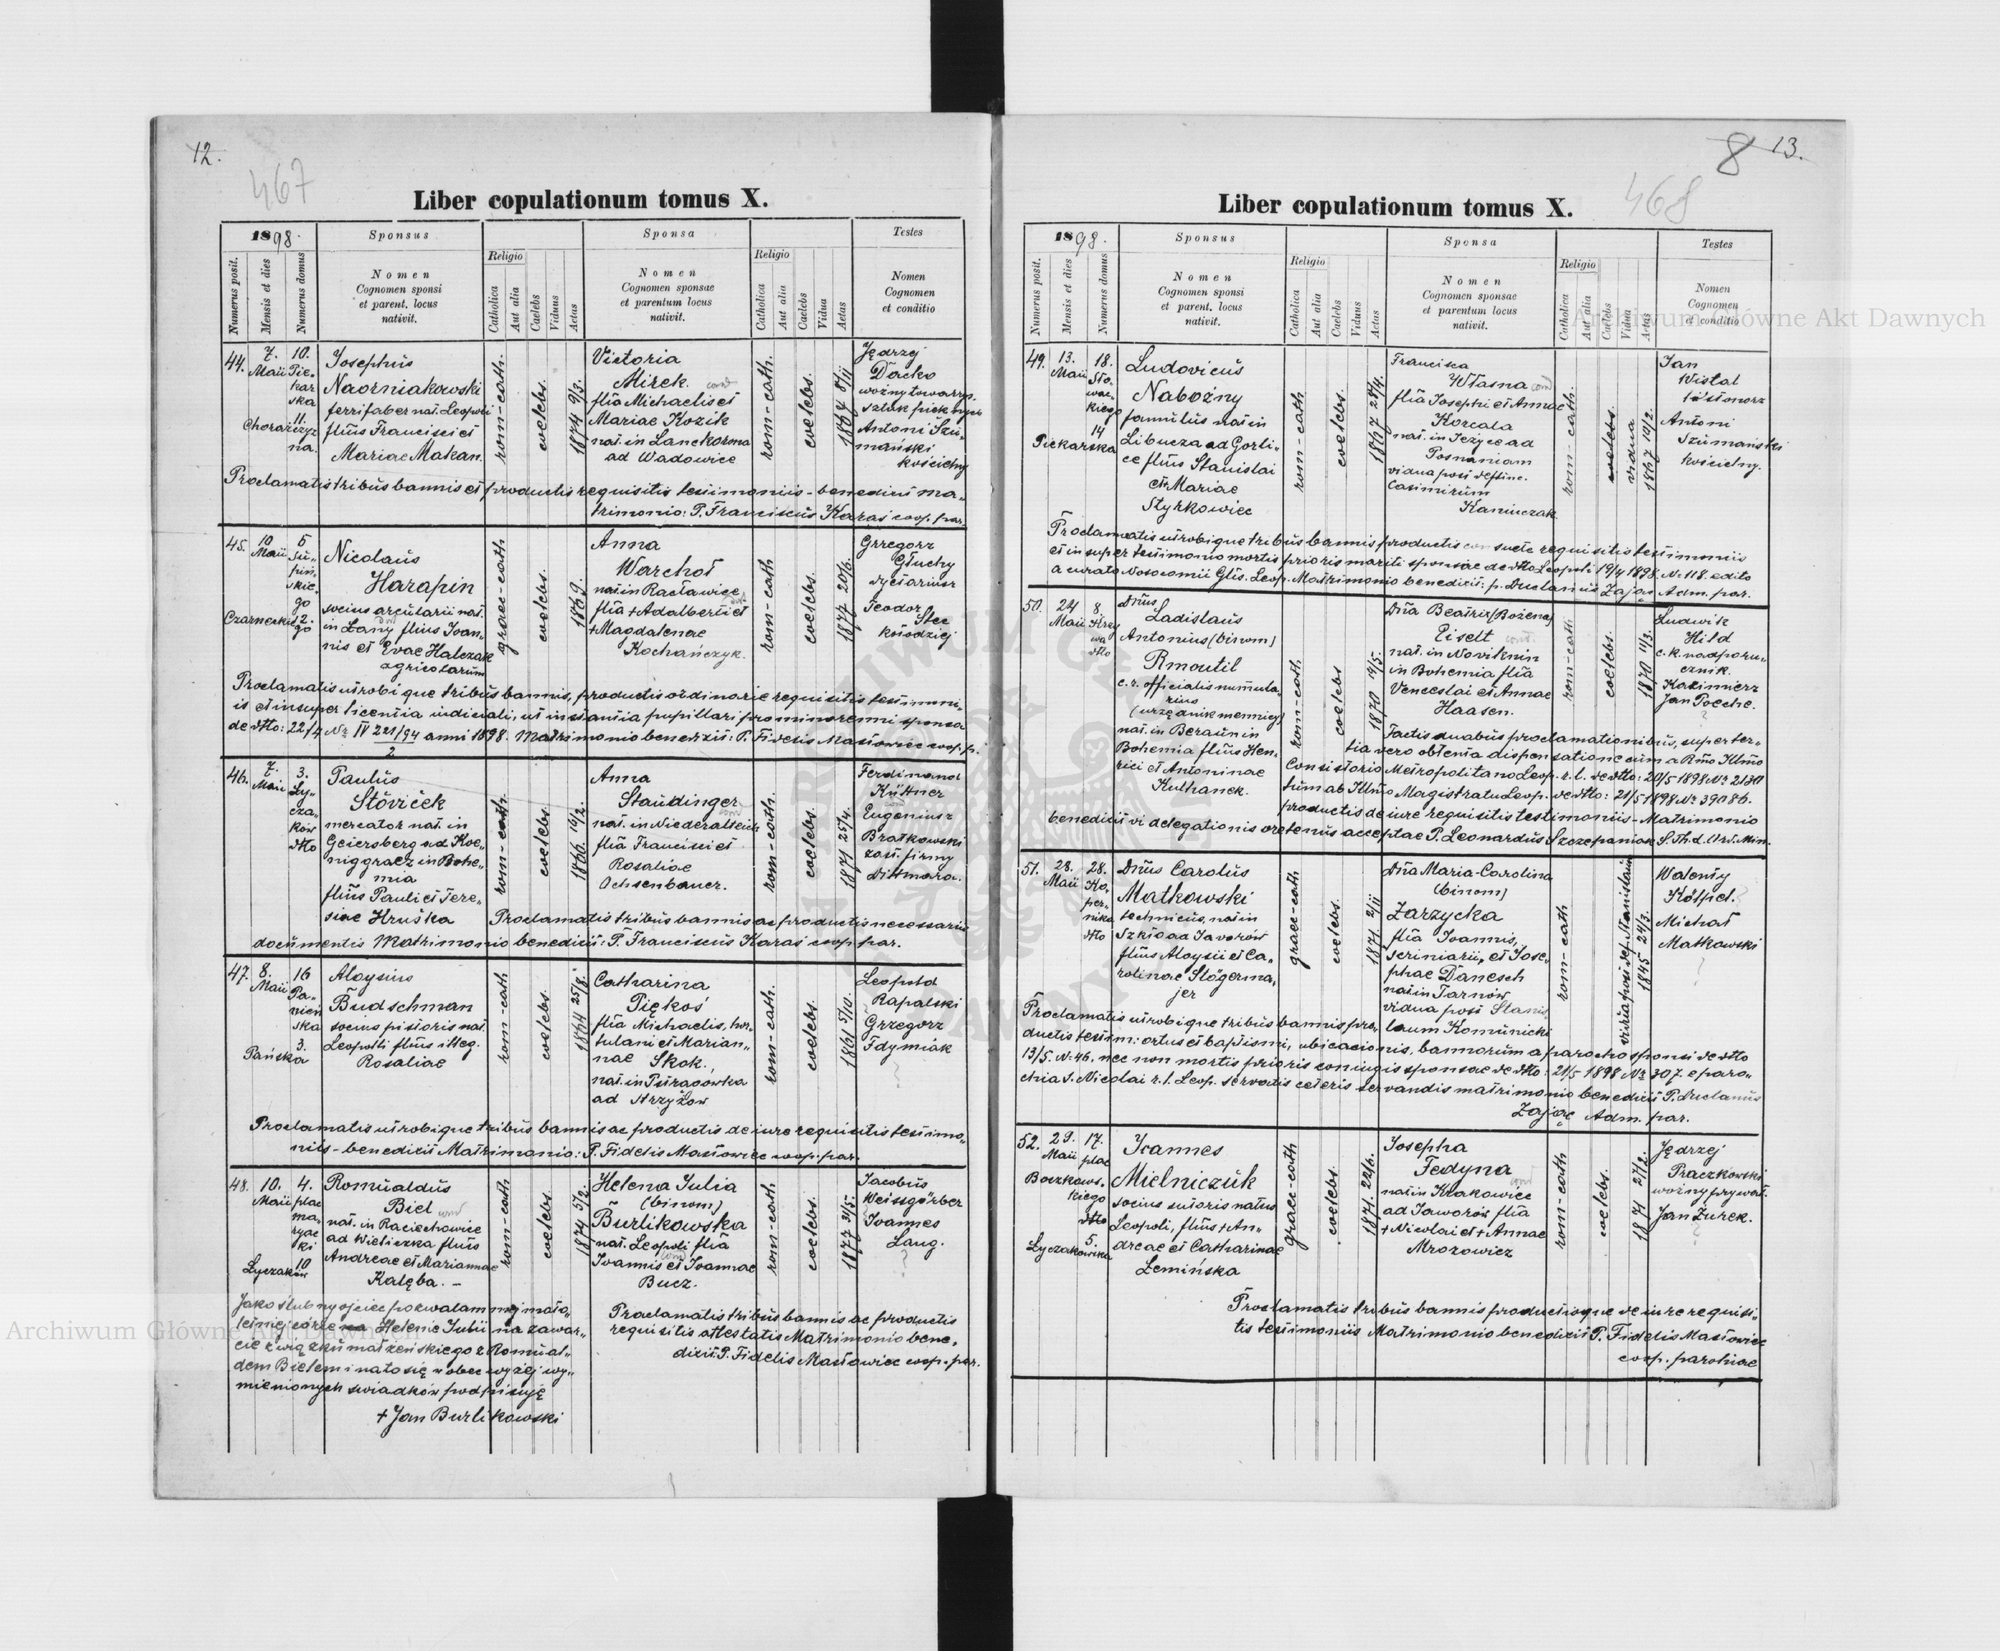 12.
467
Liber copulationum tomus X.
1898.
Sponsus
Religio
Sponsa
Religio
Testes
Numerus posit.
Mensis et dies
Numerus domus
Nomen
Cognomen sponsi
et parent. locus
nativit.
Catholica
Aut alia
Caelebs
Viduus
Aetas
Nomen
Cognomen sponsae
et parentum locus
nativit.
Catholica
Aut alia
Caelebs
Vidua
Aetas
Nomen
Cognomen
et conditio
44.
7.
Maii
10.
Pie-
kar
ska
Chorąższyz
11.
na.
Josephus
Naorniakowski
ferrifaber nat. Leopoli
filius Francisci et
Mariae Makan.
rom-cath.
coelebs.
1874 9/3.
Victoria
Mirek.
filia Michaelis et
Mariae Kozik
nat. in Lanckorona
ad Wadowice
rom-cath.
coelebs.
1864 8/11
Jędrzej
Dacko
woźny towarzys.
sztuk pięknych
Antoni Szu-
mański
kościelny
Proclamatis tribus bannis et productis requisitis testimoniis - benedixit ma-
trimonio: P. Franciscus Karaś coop. par.
45.
10
Maii
5
Su-
piń-
skie-
go
Czarneckie
2.
go
Nicolaus
Harapin
socius arcularii nat.
in Łany filius Joan-
nis et Evae Halczak
agricolarum
graec-cath
coelebs.
1869.
Anna
Warchoł
nat. in Racławice
filia + Adalberti et
+ Magdalenae
Kochańczyk.
rom-cath
coelebs.
1877 20/6.
Grzegorz
Głuchy
Teodor
Stec
kołodziej
Proclamatis utrobique tribus bannis, productis ordinarie requisitis testimoni-
is et insuper licentia iudiciali, ut instantia pupillari pro minorenni sponsa
de dtto: 22/4 № IV 221/94 anni 1898. Matrimonio benedixit: P. Fidelis Masłowiec coop. p.
2
46.
7.
Maii
3.
Ły-
cza-
ków
dtto
Paulus
Štöviček
mercator nat. in
Geiersberg ad Koe-
niggraez in Bohe-
mia
filius Pauli et Tere-
siae Hruška
rom-cath.
coelebs
1866 16/2.
Anna
Staudinger
nat. in Niederaltteich
filia Francisci et
Rosaliae
Ochsenbauer.
rom-cath.
coelebs.
1871 25/4.
Ferdinand
Küttner
Eugeniusz
Bratkowski
zast. firmy
Dittmara.
Proclamatis tribus bannis ac productis necessariis
documentis Matrimonio benedixit: P. Franciscus Karaś coop. par.
47.
8.
Maii
16
Pa-
nień
ska
3.
Pańska
Aloysius
Budschman
socius pistoris nat.
Leopoli filius illeg.
Rosaliae
rom-cath
coelebs.
1864 25/8.
Catharina
Piękoś
filia Michaelis, hor-
tulani et Marian-
nae Skok.,
nat. in Pstrągówka
ad Strzyżow
rom-cath.
coelebs.
1861 5/10.
Leopold
Rapalski
Grzegorz
Fdymiak
?
Proclamatis utrobique tribus bannis ac productis de iure requisitis testimo-
niis - benedixit Matrimonio: P. Fidelis Masłowiec coop. par.
48.
10.
Maii
4.
plac
ma-
ryac
ki
10
Łyczaków
Romualdus
Biel
nat. in Raciechowice
ad Wieliczka filius
Andreae et Mariannae
Kalęba. -
rom-cath
coelebs.
1874 5/2.
Helena Julia
(binom)
Burlikowska
nat. Leopoli filia
Joannis et Joannae
Bucz.
rom-cath
coelebs.
1877 31/5.
Jacobus
Weissgärber
Joannes
Lang.
?
Jako ślubny ojciec pozwalam mej mało-
letniej córce Helenie Julii na zawar-
cie związku małżeńskiego z Romual-
dem Bielem i na to się w obec wyżej wy-
mienionych świadków podpisuję
+ Jan Burlikowski
Proclamatis tribus bannis ac productis
requisitis attestatis Matrimonio bene-
dixit: P. Fidelis Masłowiec coop. par.
8 13.
468
Liber copulationum tomus X.
1898.
Sponsus
Religio
Sponsa
Religio
Testes
Numerus posit.
Mensis et dies
Numerus domus
Nomen
Cognomen sponsi
et parent. locus
nativit.
Catholica
Aut alia
Caelebs
Viduus
Aetas
Nomen
Cognomen sponsae
et parentum locus
nativit.
Catholica
Aut alia
Caelebs
Vidua
Aetas
Nomen
Cognomen
et conditio
49.
13.
Maii
18.
Sło-
wac-
kiego
14
Piekarska
Ludovicus
Nabożny
famulus nat. in
Libusza ad Gorli-
ce filius Stanislai
et Mariae
Styrkowiec
rom-cath
coelebs.
1867 28/4.
Francisca
Własna
filia Josephi et Annae
Korcala
nat. in Jeżyce ad
Posnaniam
vidua post defunc.
Casimirum
Kaniuczak
rom-cath.
coelebs.
vidua
1867 19/2.
Jan
Wistal
Antoni
Szumański
kościelny.
Proclamatis utrobique tribus bannis productis consuete requisitis testimonii
et insuper testimonio mortis prioris mariti sponsae de dtto Leopoli 19/4 1898. № 118. edito
a curato Nosocomii Glis. Leop. Matrimonio benedixit: P. Lucianus Zając Adm. par.
50.
24
Maii
8.
Krzy
wa
dtto
Dnus
Ladislaus
Antonius (binom)
Rmoutil
c.r. officialis numuta-
rius
(urzędnik menniczy)
nat. in Beraun in
Bohemia filius Hen-
rici et Antoninae
Kulhanek.
rom-cath
coelebs
1870 14/5.
Dna Beatrix (Božena)
Eiselt
nat. in Noviknin
in Bohemia filia
Venceslai et Annae
Haasen.
rom-cath
coelebs.
1870 11/3.
Ludwik
Hild
c.k. nadporu-
cznik.
Kazimierz
Jan Poeche.
?
Factis duabus proclamationibus, super ter-
tia vero obtenta dispensatione cum a Rmo Illmo
Consistorio Metropolitano Leop. r.l. de dtto: 20/5 1898 №
tum ab Illmo Magistratu Leop. de dtto: 21/5 1898 № 39086.
productis de iure requisitis testimoniis - Matrimonio
benedixit vi delegationis oretenus acceptae P. Leonardus Szczepaniak S. Th. d. Ord. Min.
51.
28.
Maii
28.
Ko-
per-
nika
dtto
Dnus Carolus
Matkowski
technicus, nat. in
Szkło ad Javorów
filius Aloysii et Ca-
rolinae Stögerma-
jer
graec-cath
coelebs.
1871. 2/11
Dna Maria-Carolina
(binom)
Zarzycka
filia Joannis,
scriniarii, et Jose-
phae Danesch
nat. in Tarnów
vidua post Stanis-
laum Komunicki
rom-cath
vidua post def. Stanislaum
1845 24/3.
Walenty
Kótfiel.
Michał
Matkowski
?
Proclamatis utrobique tribus bannis, pro-
ductis testim: ortus et baptismi, ubicacionis, bannorum a parocho sponsi de dtto
13/5. №. 46, nec non mortis prioris coniugis sponsae de dtto: 21/5 1898 № 307. e paro-
chia S. Nicolai r.l. Leop. servatis ceteris servandis matrimonio benedixit P. Lucianus
Zając Adm. par.
52.
29.
Maii
17.
plac
Boczkows-
kiego
dtto
5.
Łyczakowska
Joannes
Mielniczuk
socius sutoris natus
Leopoli, filius + An-
dreae et Catharinae
Lemińska
graec-cath
coelebs.
1871. 22/6.
Josepha
Fedyna
nat. in Krakowiec
ad Jaworów filia
+ Nicolai et + Annae
Mrozowicz
rom-cath
coelebs.
1871 27/2.
Jędrzej
Praczkowski
woźny prywat.
Jan Żurek.
?
Proclamatis tribus bannis productisque de iure requisi-
tis testimoniis Matrimonio benedixit P. Fidelis Masłowiec
coop. parochiae
Archiwum Główne Akt Dawnych
Archiwum Główne Akt Dawnych